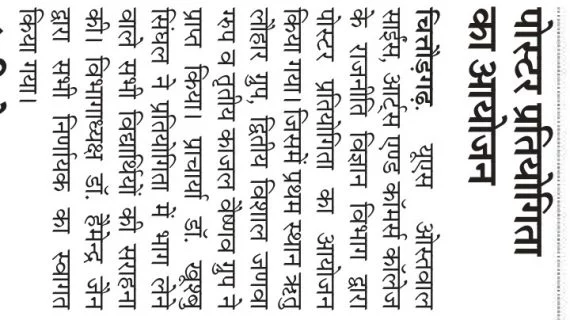 पोस्टर प्रतियोगिता
का आयोजन
चित्तौड़गढ़. यूएस ओस्तवाल
साइंस, आर्ट्स एण्ड कॉमर्स कॉलेज
के राजनीति विज्ञान विभाग द्वारा
पोस्टर प्रतियोगिता का आयोजन
किया गया। जिसमें प्रथम स्थान ऋतु
लौहार ग्रुप, द्वितीय विशाल जणवा
ग्रुप व तृतीय काजल वैष्णव ग्रुप ने
प्राप्त किया। प्राचार्या डॉ. खुश्बु
सिंघल ने प्रतियोगिता में भाग लेने
वाले सभी विद्यार्थियों की सराहना
की। विभागाध्यक्ष डॉ. हेमेन्द्र जैन
द्वारा सभी निर्णायक का स्वागत
किया गया।